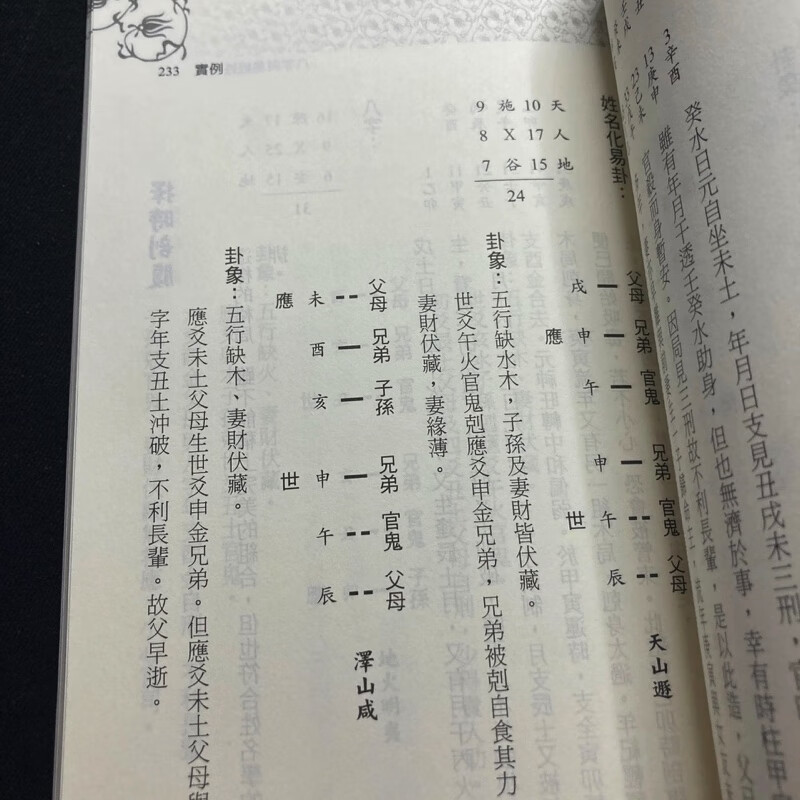 233 實例
3 辛酉
13 庚申
23 己未
癸水日元自坐未土，年月日支見丑戌未三刑，官
雖有年月干透壬癸水助身，但也無濟於事，幸有時柱甲
官殺而身暫安。因局見三刑故不利長輩，是以此造，父
姓名化易卦：
9 施 10 天
8 X 17 人
7 谷 15 地
24
父母 兄弟 官鬼 兄弟 官鬼 父母
戌 申 午 申 午 辰
應 世
天山遯
卦象：五行缺水木，子孫及妻財皆伏藏。
世爻午火官鬼剋應爻申金兄弟，兄弟被剋自食其力
妻財伏藏，妻緣薄。
父母 兄弟 子孫 兄弟 官鬼 父母
未 酉 亥 申 午 辰
應 世
澤山咸
卦象：五行缺木、妻財伏藏。
應爻未土父母生世爻申金兄弟。但應爻未土父母與
字年支丑土沖破，不利長輩。故父早逝。